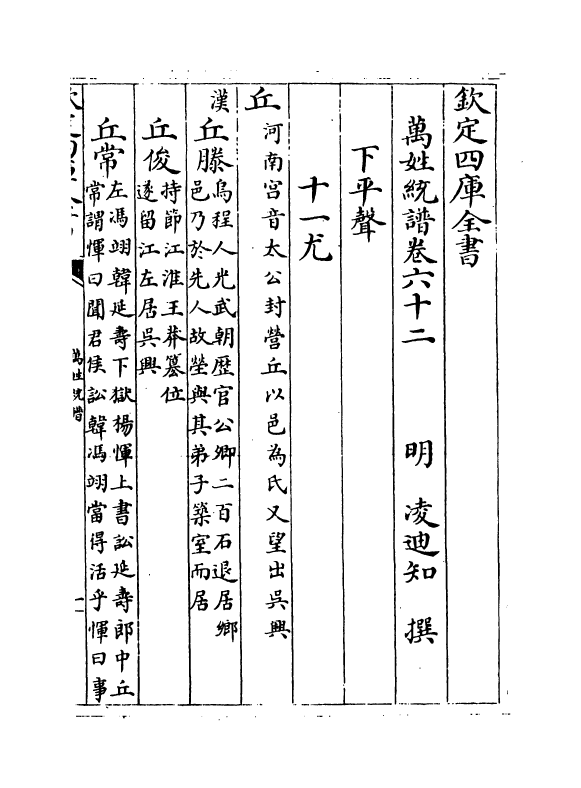 欽定四庫全書
萬姓統譜卷六十二　明　凌迪知　撰
下平聲
十一尤
丘　河南宮音太公封營丘以邑為氏又望出吳興
漢　丘滕　烏程人光武朝歷官公卿二百石退居鄉
邑乃於先人故塋與其弟子築室而居
丘俊　持節江淮王莽簒位
遂留江左居吳興
丘常　左馮翊韓延壽下獄楊惲上書訟延壽郎中丘
常謂惲曰聞君侯訟韓馮翊當得活乎惲曰事
萬姓統譜
一